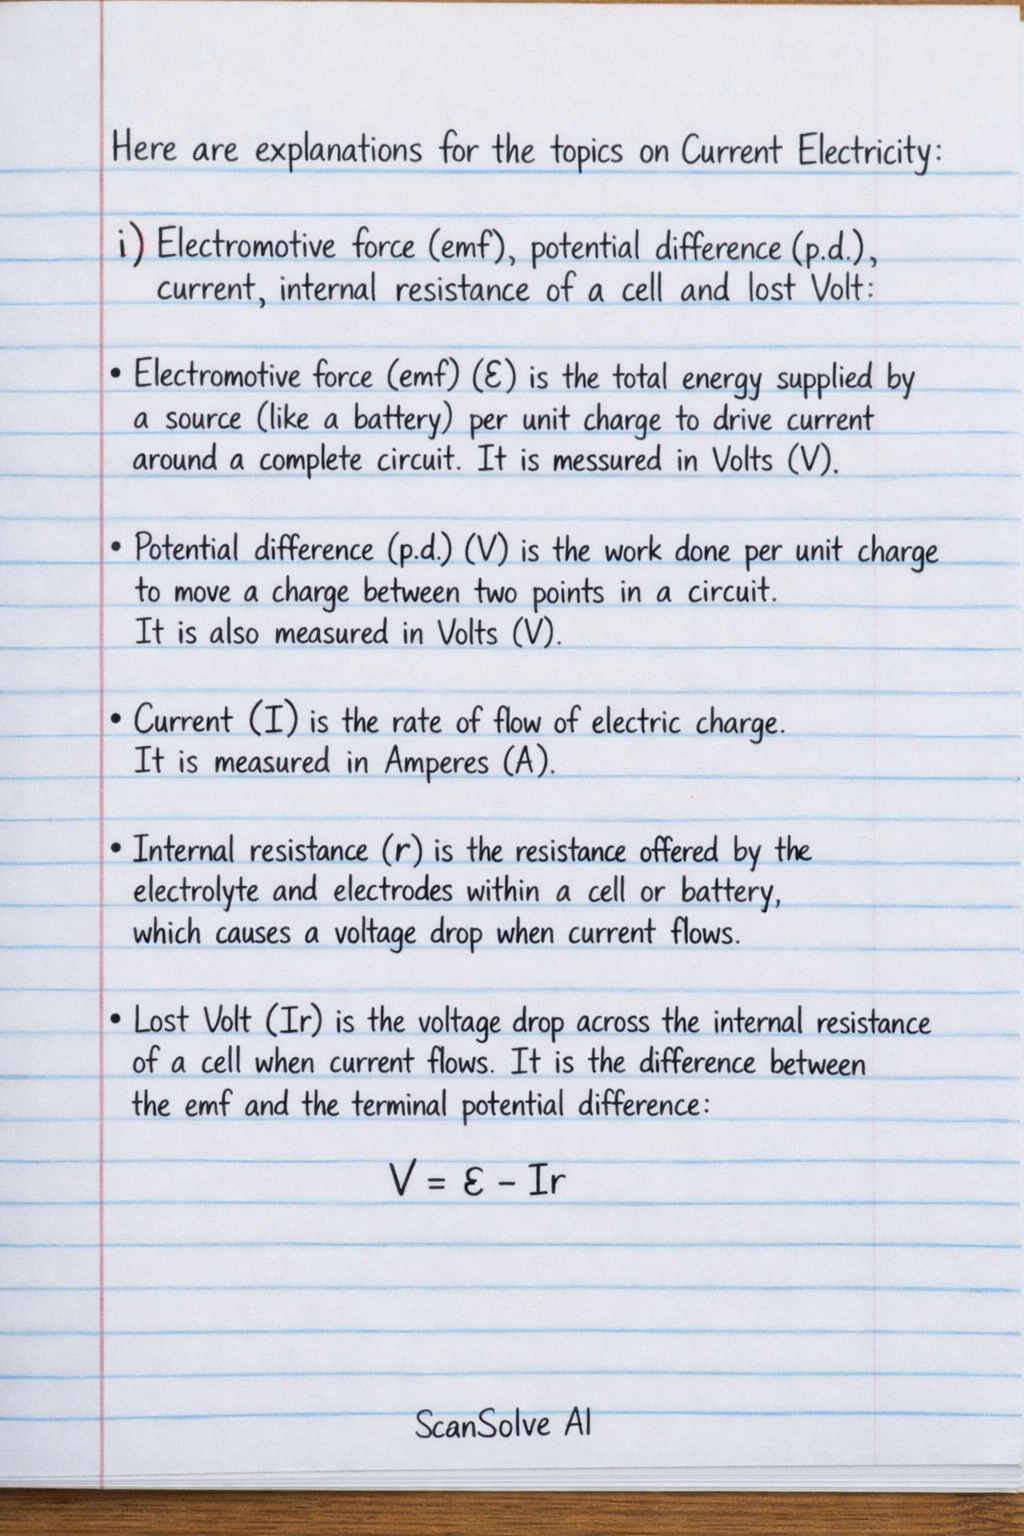 Here are explanations for the topics on Current Electricity:
i) Electromotive force (emf), potential difference (p.d.),
current, internal resistance of a cell and lost Volt:
• Electromotive force (emf) (Ɛ) is the total energy supplied by
a source (like a battery) per unit charge to drive current
around a complete circuit. It is messured in Volts (V).
• Potential difference (p.d.) (V) is the work done per unit charge
to move a charge between two points in a circuit.
It is also measured in Volts (V).
• Current (I) is the rate of flow of electric charge.
It is measured in Amperes (A).
• Internal resistance (r) is the resistance offered by the
electrolyte and electrodes within a cell or battery,
which causes a voltage drop when current flows.
• Lost Volt (Ir) is the voltage drop across the internal resistance
of a cell when current flows. It is the difference between
the emf and the terminal potential difference:
V = Ɛ – Ir
ScanSolve AI